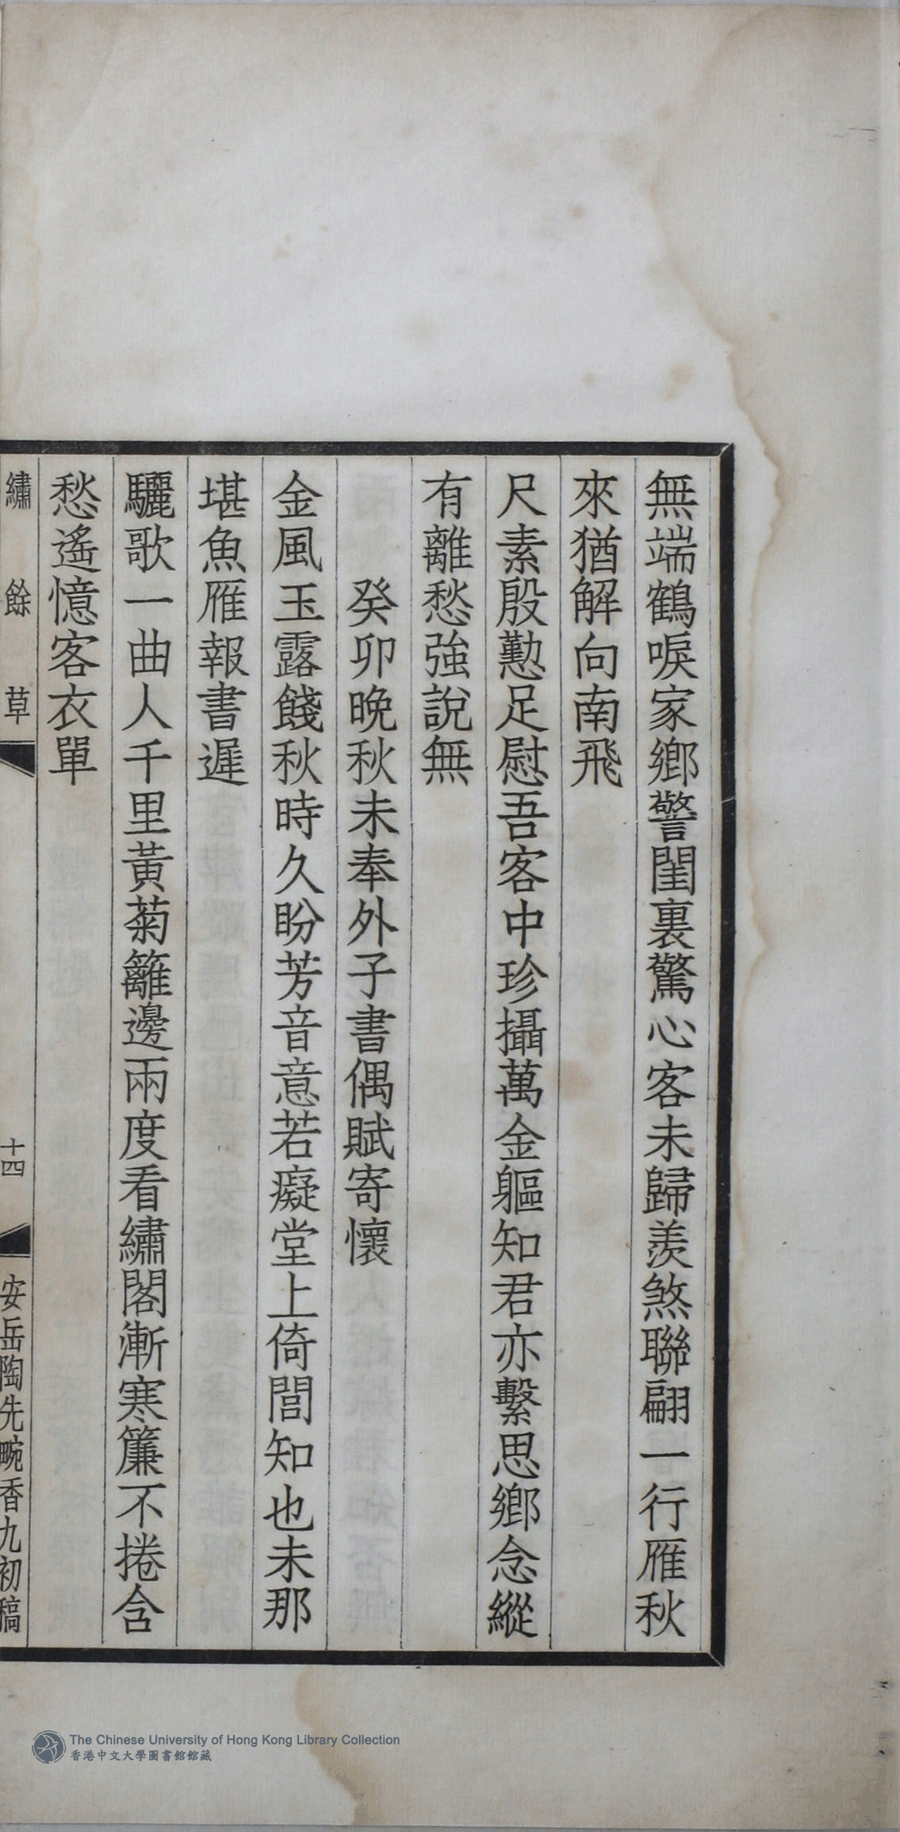 無端鶴唳家鄉警閨裏驚心客未歸羨煞聯翩一行雁秋
來猶解向南飛
尺素殷懃足慰吾客中珍攝萬金軀知君亦繫思鄉念縱
有離愁強說無
癸卯晚秋未奉外子書偶賦寄懷
金風玉露餞秋時久盼芳音意若癡堂上倚閭知也未那
堪魚雁報書遲
驪歌一曲人千里黃菊籬邊兩度看繡閣漸寒簾不捲含
愁遙憶客衣單
繡餘草
十四
安岳陶先畹香九初稿
The Chinese University of Hong Kong Library Collection
香港中文大學圖書館館藏